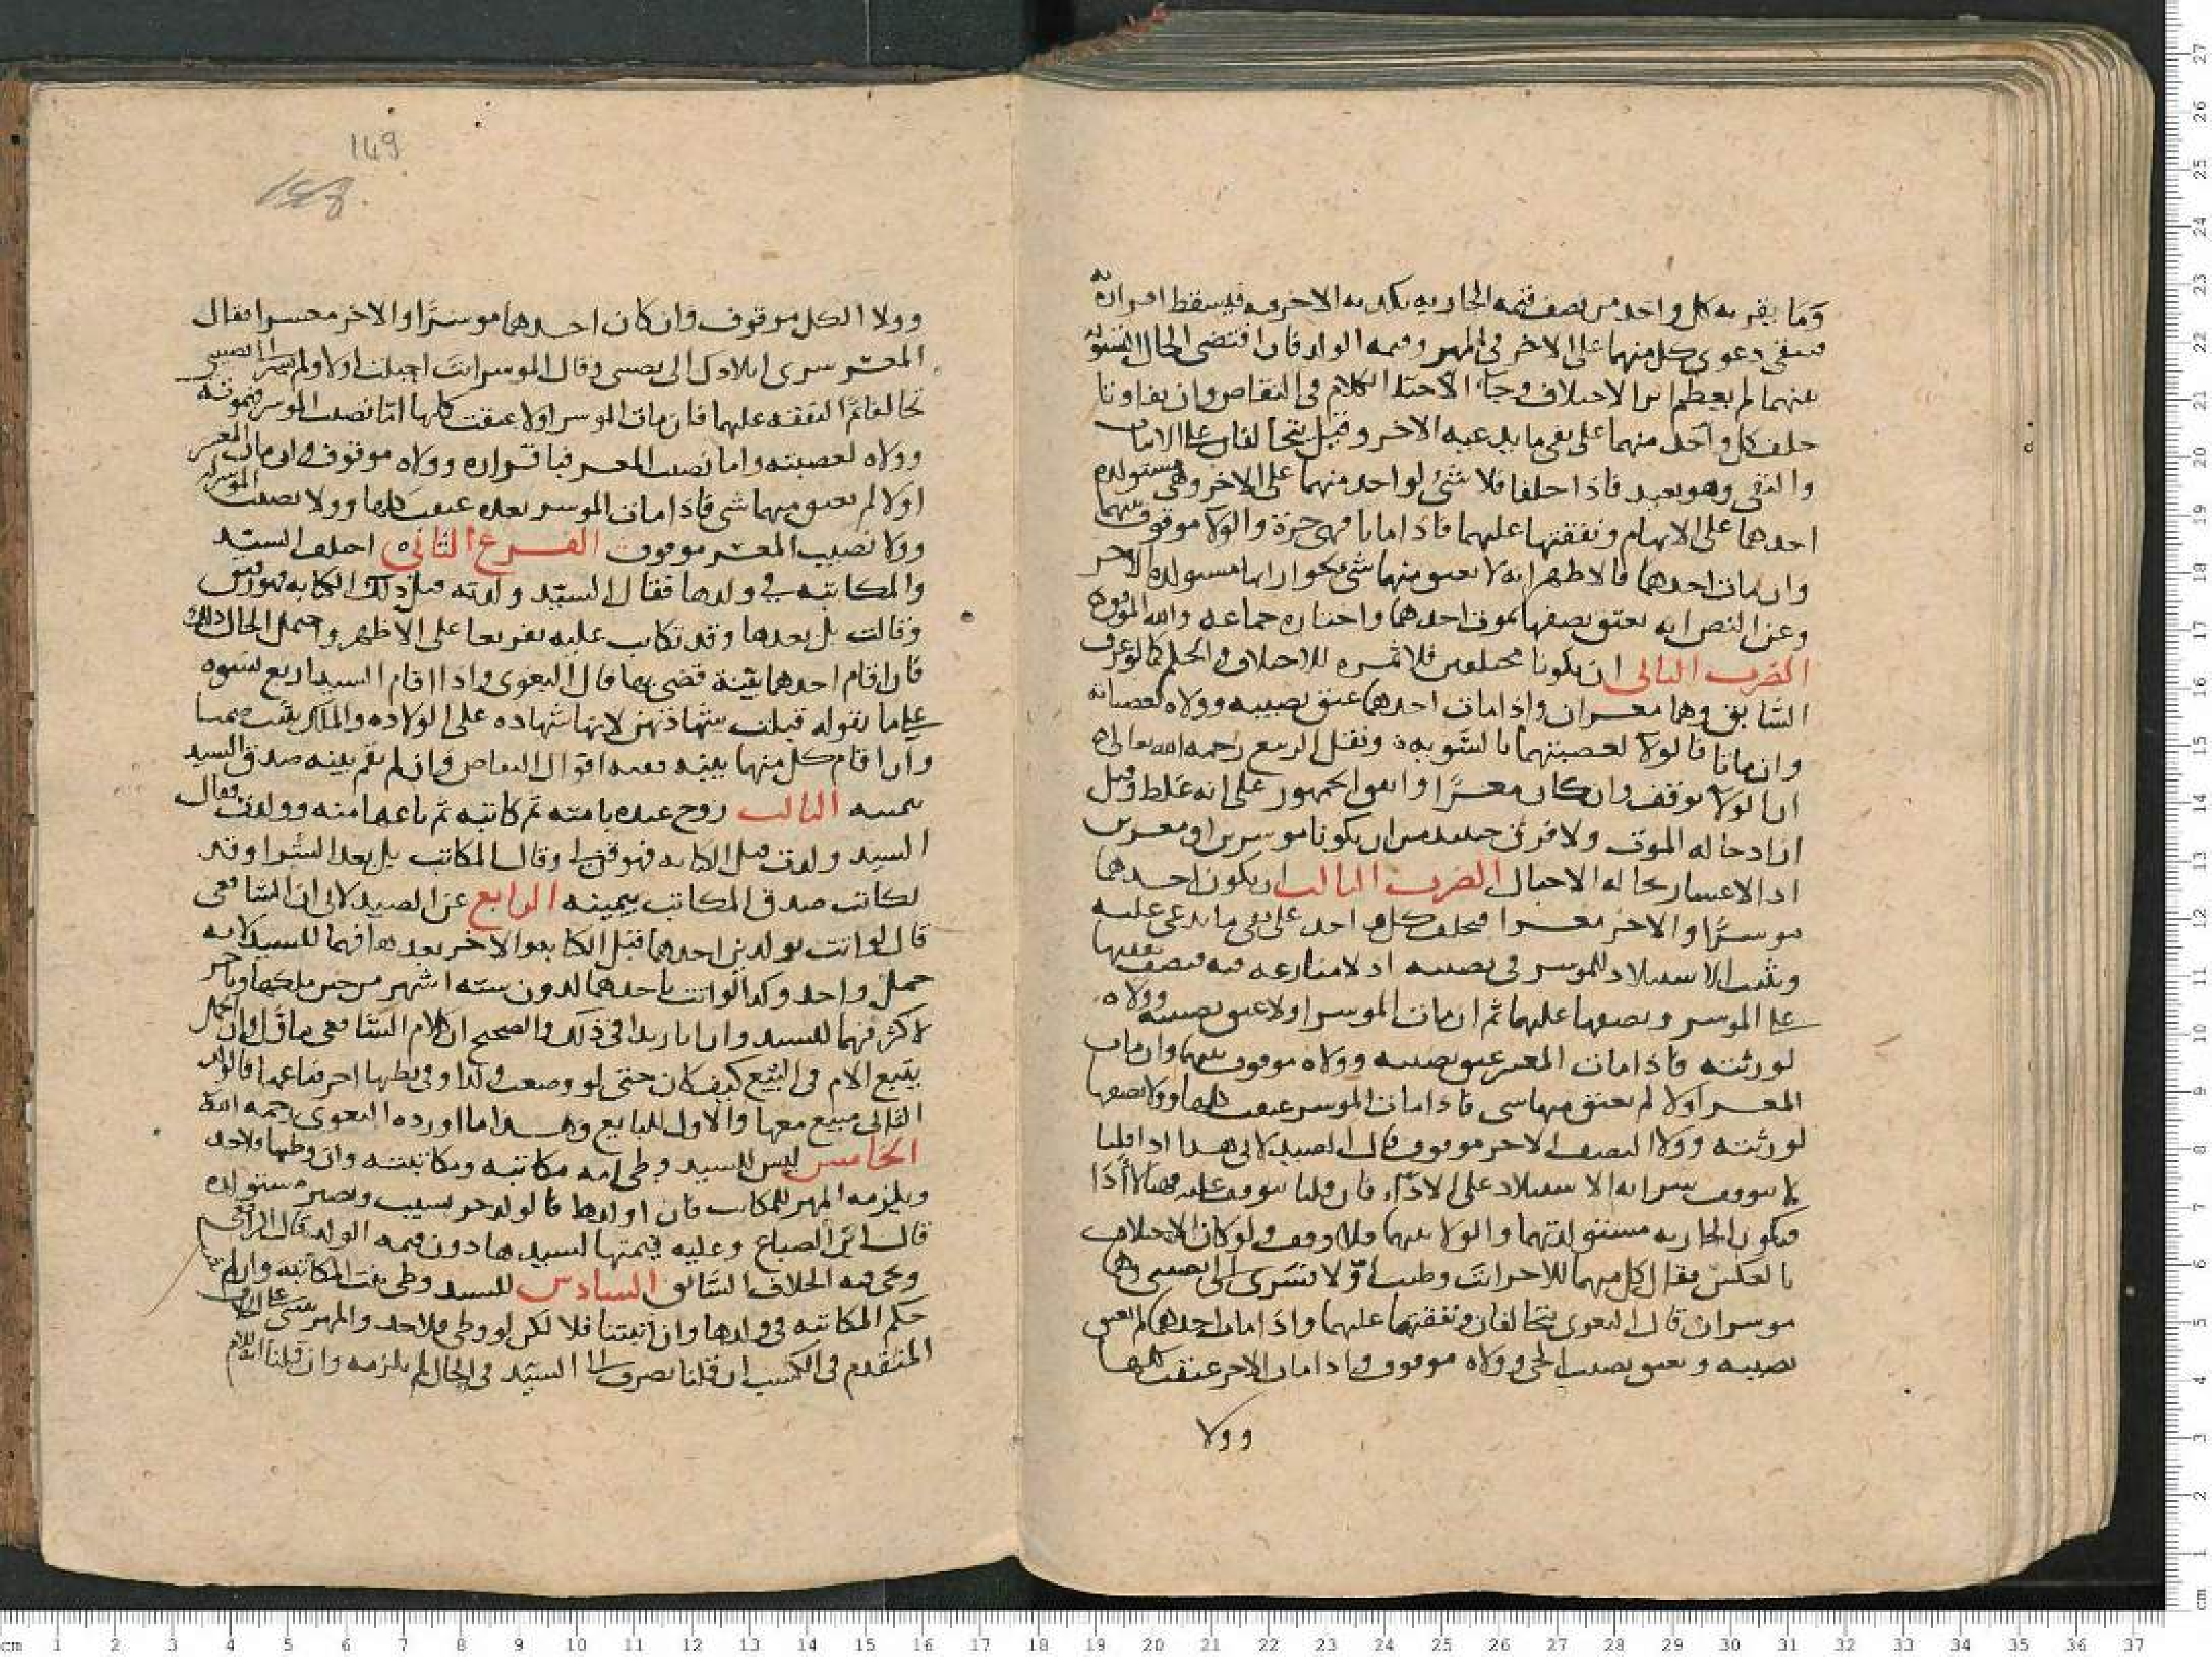 وما يقر به كل واحد من نصف قيمه الجاريه يكذبه الاخر فيه فيسقط اقراره
فيبقى دعوى كل منهما على الاخر فى المهر وقيمه الولد فان اقتضى الحال التسويه
بينهما لم يعظم اثر الاختلاف وجاء الكلام فى التقاص وان تفاوتا
حلف كل واحد منهما على نفى ما يدعيه الاخر وقيل يتحالفان على الاثبات
والنفى وهو بعيد فاذا حلفا فلا شئ لواحد منهما على الاخر وهى مستولده
احدهما على الابهام ونفقتها عليهما فاذا ماتا فهى حرة والولا موقوف بينهما
وان مات احدهما فالاظهر انه لا يعتق منها شى لجواز انها مستولده الاخر
وعن النص انه يعتق نصفها بموت احدهما واختاره جماعه
الضرب الثانى ان يكونا فلا ثمره للاختلاف فى الحكم كما لو عرف
السابق وهما معسران واذا مات احدهما عتق نصيبه وولاه لعصباته
وان ماتا فالولا لعصبتهما بالسويه ونقل الربيع رحمه الله تعالى
ان الولا يوقف وان كان معسرا واتفق الجمهور على انه غلط وقيل
اراد حاله الموت ولا فرق حينئذ بين ان يكونا موسرين او معسرين
اذ الاعتبار بحاله الاحبال الضرب الثالث ان يكون احدهما
موسرا والاخر معسرا فيحلف كل واحد على نفى ما يدعى عليه
ويثبت الاستيلاد للموسر فى نصيبه اذ لا منازعه فيه فنصف نفقتها
على الموسر ونصفها عليهما ثم ان مات الموسر اولا عتق نصيبه وولاه
لورثته فاذا مات المعسر عتق نصيبه وولاه موقوف بينهما وان مات
المعسر اولا لم يعتق منها شى فاذا مات الموسر عتقت كلها وولا نصفها
لورثته وولا النصف الاخر موقوف قال الصيدلانى هذا اذا قلنا
لا يتوقف سرايه الاستيلاد على الاداء فان قلنا يتوقف عليه
فيكون الجاريه مستولدتهما والولا بينهما فلا وقف ولو كان الاختلاف
بالعكس فقال كل منهما للاخر انت وطيت اولا فسرى الى نصيبى وهما
موسران قال البغوى يتحالفان ونفقتها عليهما واذا مات احدهما لم يعتق
نصيبه ويعتق نصيب الحى وولاه موقوف واذا مات الاخر عتقت كلها
وولا
149
وولا الكل موقوف وان كان احدهما موسرا والاخر معسرا فقال
المعسر سرى ايلادك الى نصيبى وقال الموسر انت احبلت اولا ولم يسر الى نصيبى
تحالفا ثم النفقه عليهما فان مات الموسر اولا عتقت كلها اما نصيب الموسر فبموته
وولاه لعصبته واما نصيب المعسر فباقراره وولاه موقوف وان مات المعسر
اولا لم يعتق منها شى فاذا مات الموسر بعده عتقت كلها وولا نصيب الموسر لورثته
وولا نصيب المعسر موقوف الفرع الثانى اختلف السيد
والمكاتبه فى ولدها فقال السيد ولدته قبل الكتابه فهو رقيق
وقالت بل بعدها وقد تكاتب عليه تفريعا على الاظهر واحتمل الحال ذلك
فان اقام احدهما بينة قضى بها قال البغوى واذا اقام السيد اربع نسوه
على ما يقوله قبلت شهادتهن لانها شهاده على الولاده والملك يثبت ضمنا
وان اقام كل منهما بينه ففيه اقوال التعارض وان لم يقم بينه صدق السيد
بيمينه الثالث زوج عبده بامته ثم كاتبه ثم باعها منه وولدت فقال
السيد ولدت قبل الكتابه فهو قن لى وقال المكاتب بل بعد الشرا وقد
تكاتب صدق المكاتب بيمينه الرابع عن الصيدلانى ان الشافعى
قال لو اتت بولدين احدهما قبل الكتابه والاخر بعدها فهما للسيد لانه
حمل واحد وكذا لو اتت باحدهما لدون سته اشهر من حين ملكها وبالاخر
لاكثر فهما للسيد والصحيح ان كلام الشافعى ماول وان الحمل
يتبع الام فى البيع كيف كان حتى لو وضعت ولدا وفى بطنها اخر فباعها فالولد
الثانى مبيع معها والاول للبايع وهذا ما اورده البغوى رحمه الله
الخامس ليس للسيد وطى امه مكاتبه ومكاتبته وان وطيها فلا حد
ويلزمه المهر للمكاتب فان اولدها فالولد حر نسيب وتصير مستولده
قال ابن الصباغ وعليه قيمتها لسيدها دون قيمه الولد قال الرافعى
ويجى فيه الخلاف السابق السادس للسيد وطى بنت المكاتبه وان لم يثبت
حكم المكاتبه فى ولدها وان اثبتنا فلا لكن لو وطى فلا حد والمهر يبنى على الخلاف
المتقدم فى الكسب ان قلنا يصرف الى السيد فى الحال لم يلزمه وان قلنا